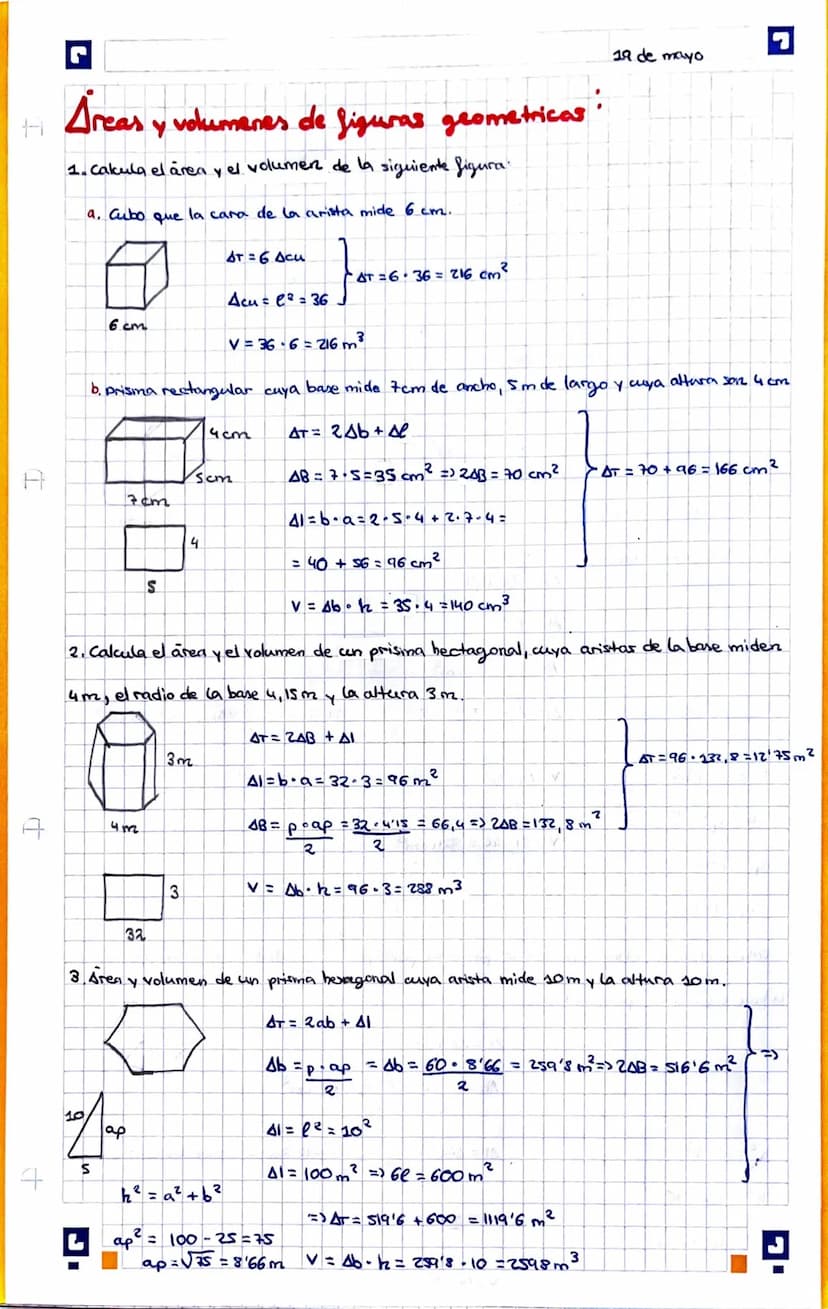 19 de mayo
Áreas y volumenes de figuras geometricas:
1. Calcula el área y el volumen de la siguiente figura:
a. Cubo que la cara de la arista mide 6 cm.
AT = 6 Acu
AT = 6 · 36 = 216 cm²
Acu = l² = 36
6 cm
V = 36 · 6 = 216 m³
b. prisma rectangular cuya base mide 7cm de ancho, 5 m de largo y cuya altura son 4 cm
4cm
AT = 2Ab + Al
5cm
AB = 7 · 5 = 35 cm² => 2AB = 70 cm²
AT = 70 + 96 = 166 cm²
7cm
Al = b · a = 2 · 5 · 4 + 2 · 7 · 4 =
4
= 40 + 56 = 96 cm²
5
V = Ab · h = 35 · 4 = 140 cm³
2. Calcula el área y el volumen de un prisma hectagonal, cuya aristas de la base miden
4 m, el radio de la base 4,15 m y la altura 3 m.
AT = 2AB + Al
3m
AT = 96 · 132,8 = 12'75 m²
Al = b · a = 32 · 3 = 96 m²
4m
AB = p · ap / 2 = 32 · 4'15 / 2 = 66,4 => 2AB = 132,8 m²
3
V = Ab · h = 96 · 3 = 288 m³
32
3. Área y volumen de un prisma hexagonal cuya arista mide 10m y la altura 10 m.
AT = 2ab + Al
Ab = p · ap / 2 = Ab = 60 · 8'66 / 2 = 259'8 m² => 2AB = 516'6 m² =>
10
ap
Al = l² = 10²
5
Al = 100 m² => 6l = 600 m²
h² = a² + b²
=> AT = 519'6 + 600 = 1119'6 m²
ap² = 100 - 25 = 75
ap = √75 = 8'66 m
V = Ab · h = 259'8 · 10 = 2598 m³